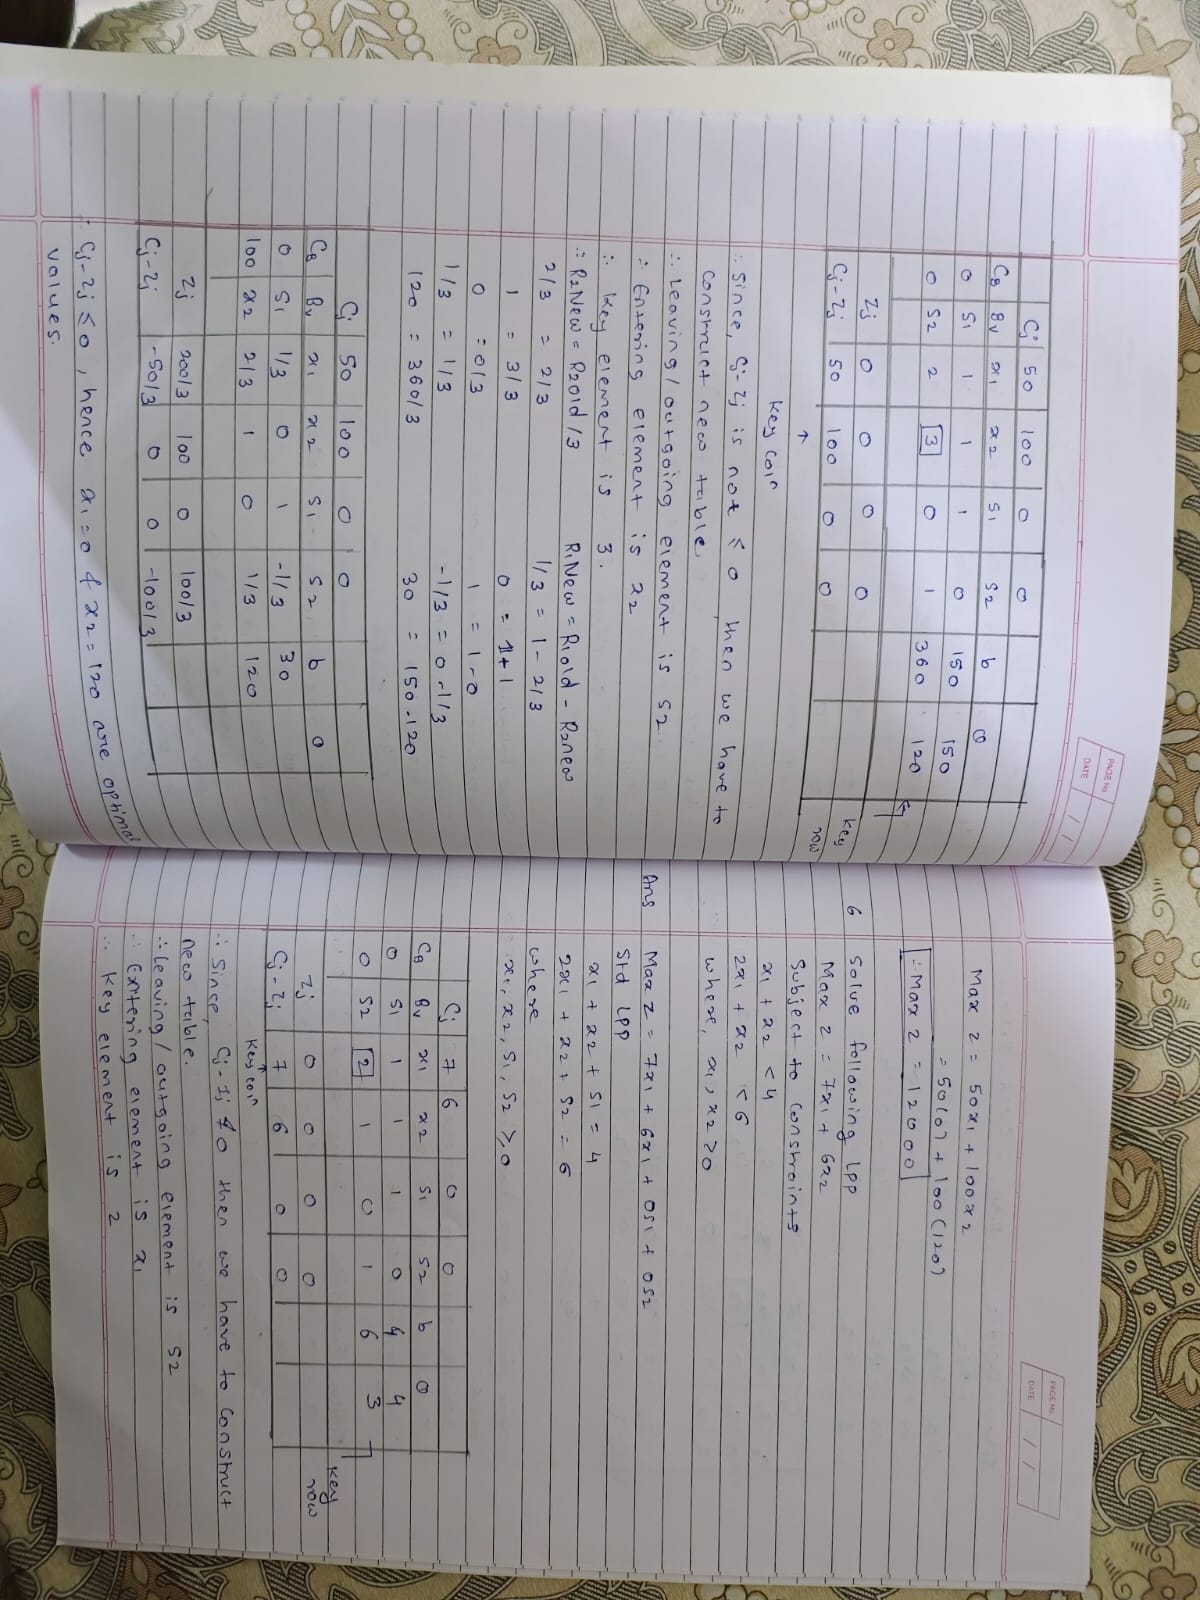 PAGE No.
DATE / /
Cj 50 100 0 0
CB Bv x1 x2 S1 S2 b θ
0 S1 1 1 1 0 150 150
0 S2 2 3 0 1 360 120
Zj 0 0 0 0 key
Cj-Zj 50 100 0 0 row
↑
key colⁿ
∴ Since, Cj-Zj is not ≤ 0 then we have to
construct new table.
∴ Leaving/outgoing element is S2
∴ Entering element is x2
∴ key element is 3.
∴ R2New = R2old /3 R1New = R1old - R2new
2/3 = 2/3 1/3 = 1-2/3
1 = 3/3 0 = 1+1
0 = 0/3 1 = 1-0
1/3 = 1/3 -1/3 = 0-1/3
120 = 360/3 30 = 150-120
Cj 50 100 0 0
CB Bv x1 x2 S1 S2 b θ
0 S1 1/3 0 1 -1/3 30
100 x2 2/3 1 0 1/3 120
Zj 200/3 100 0 100/3
Cj-Zj -50/3 0 0 -100/3
∴ Cj-Zj ≤ 0, hence x1=0 & x2=120 are optimal
values.
PAGE No.
DATE / /
Max Z = 50x1 + 100x2
= 50(0) + 100(120)
∴ Max Z = 12000
6 Solve following Lpp
Max Z = 7x1 + 6x2
Subject to constraints
x1 + x2 < 4
2x1 + x2 < 6
where, x1, x2 >0
Ans Max Z = 7x1 + 6x1 + 0S1 + 0S2
Std Lpp
x1 + x2 + S1 = 4
2x1 + x2 + S2 = 6
where
x1, x2, S1, S2 ≥ 0
Cj 7 6 0 0
CB Bv x1 x2 S1 S2 b θ
0 S1 1 1 1 0 4 4
0 S2 2 1 0 1 6 3
key
Zj 0 0 0 0 row
Cj-Zj 7 6 0 0
key colⁿ
∴ Since, Cj-Zj ≰ 0 then we have to construct
new table.
∴ Leaving/outgoing element is S2
∴ Entering element is x1
∴ key element is 2